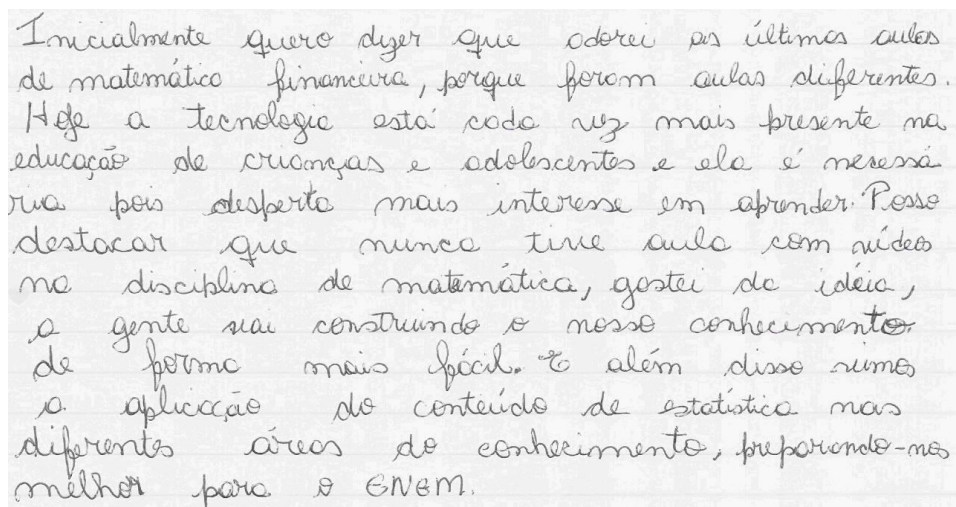 Inicialmente quero dizer que adorei as últimas aulas
de matemática financeira, porque foram aulas diferentes.
Hoje a tecnologia está cada vez mais presente na
educação de crianças e adolescentes e ela é necessá
ria pois desperta mais interesse em aprender. Posso
destacar que nunca tive aula com vídeo
na disciplina de matemática, gostei da idéia,
a gente vai construindo o nosso conhecimento
de forma mais fácil. E além disso vimos
a aplicação do conteúdo de estatística nas
diferentes áreas do conhecimento, preparando-nos
melhor para o ENEM.